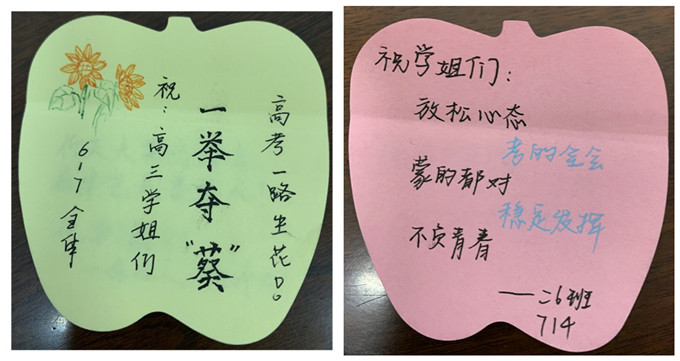 高考一路生花
一举夺“葵”
祝：高三学姐们
6-7 全体
祝学姐们：
放松心态
考的全会
蒙的都对
稳定发挥
不负青春
——二6班
714